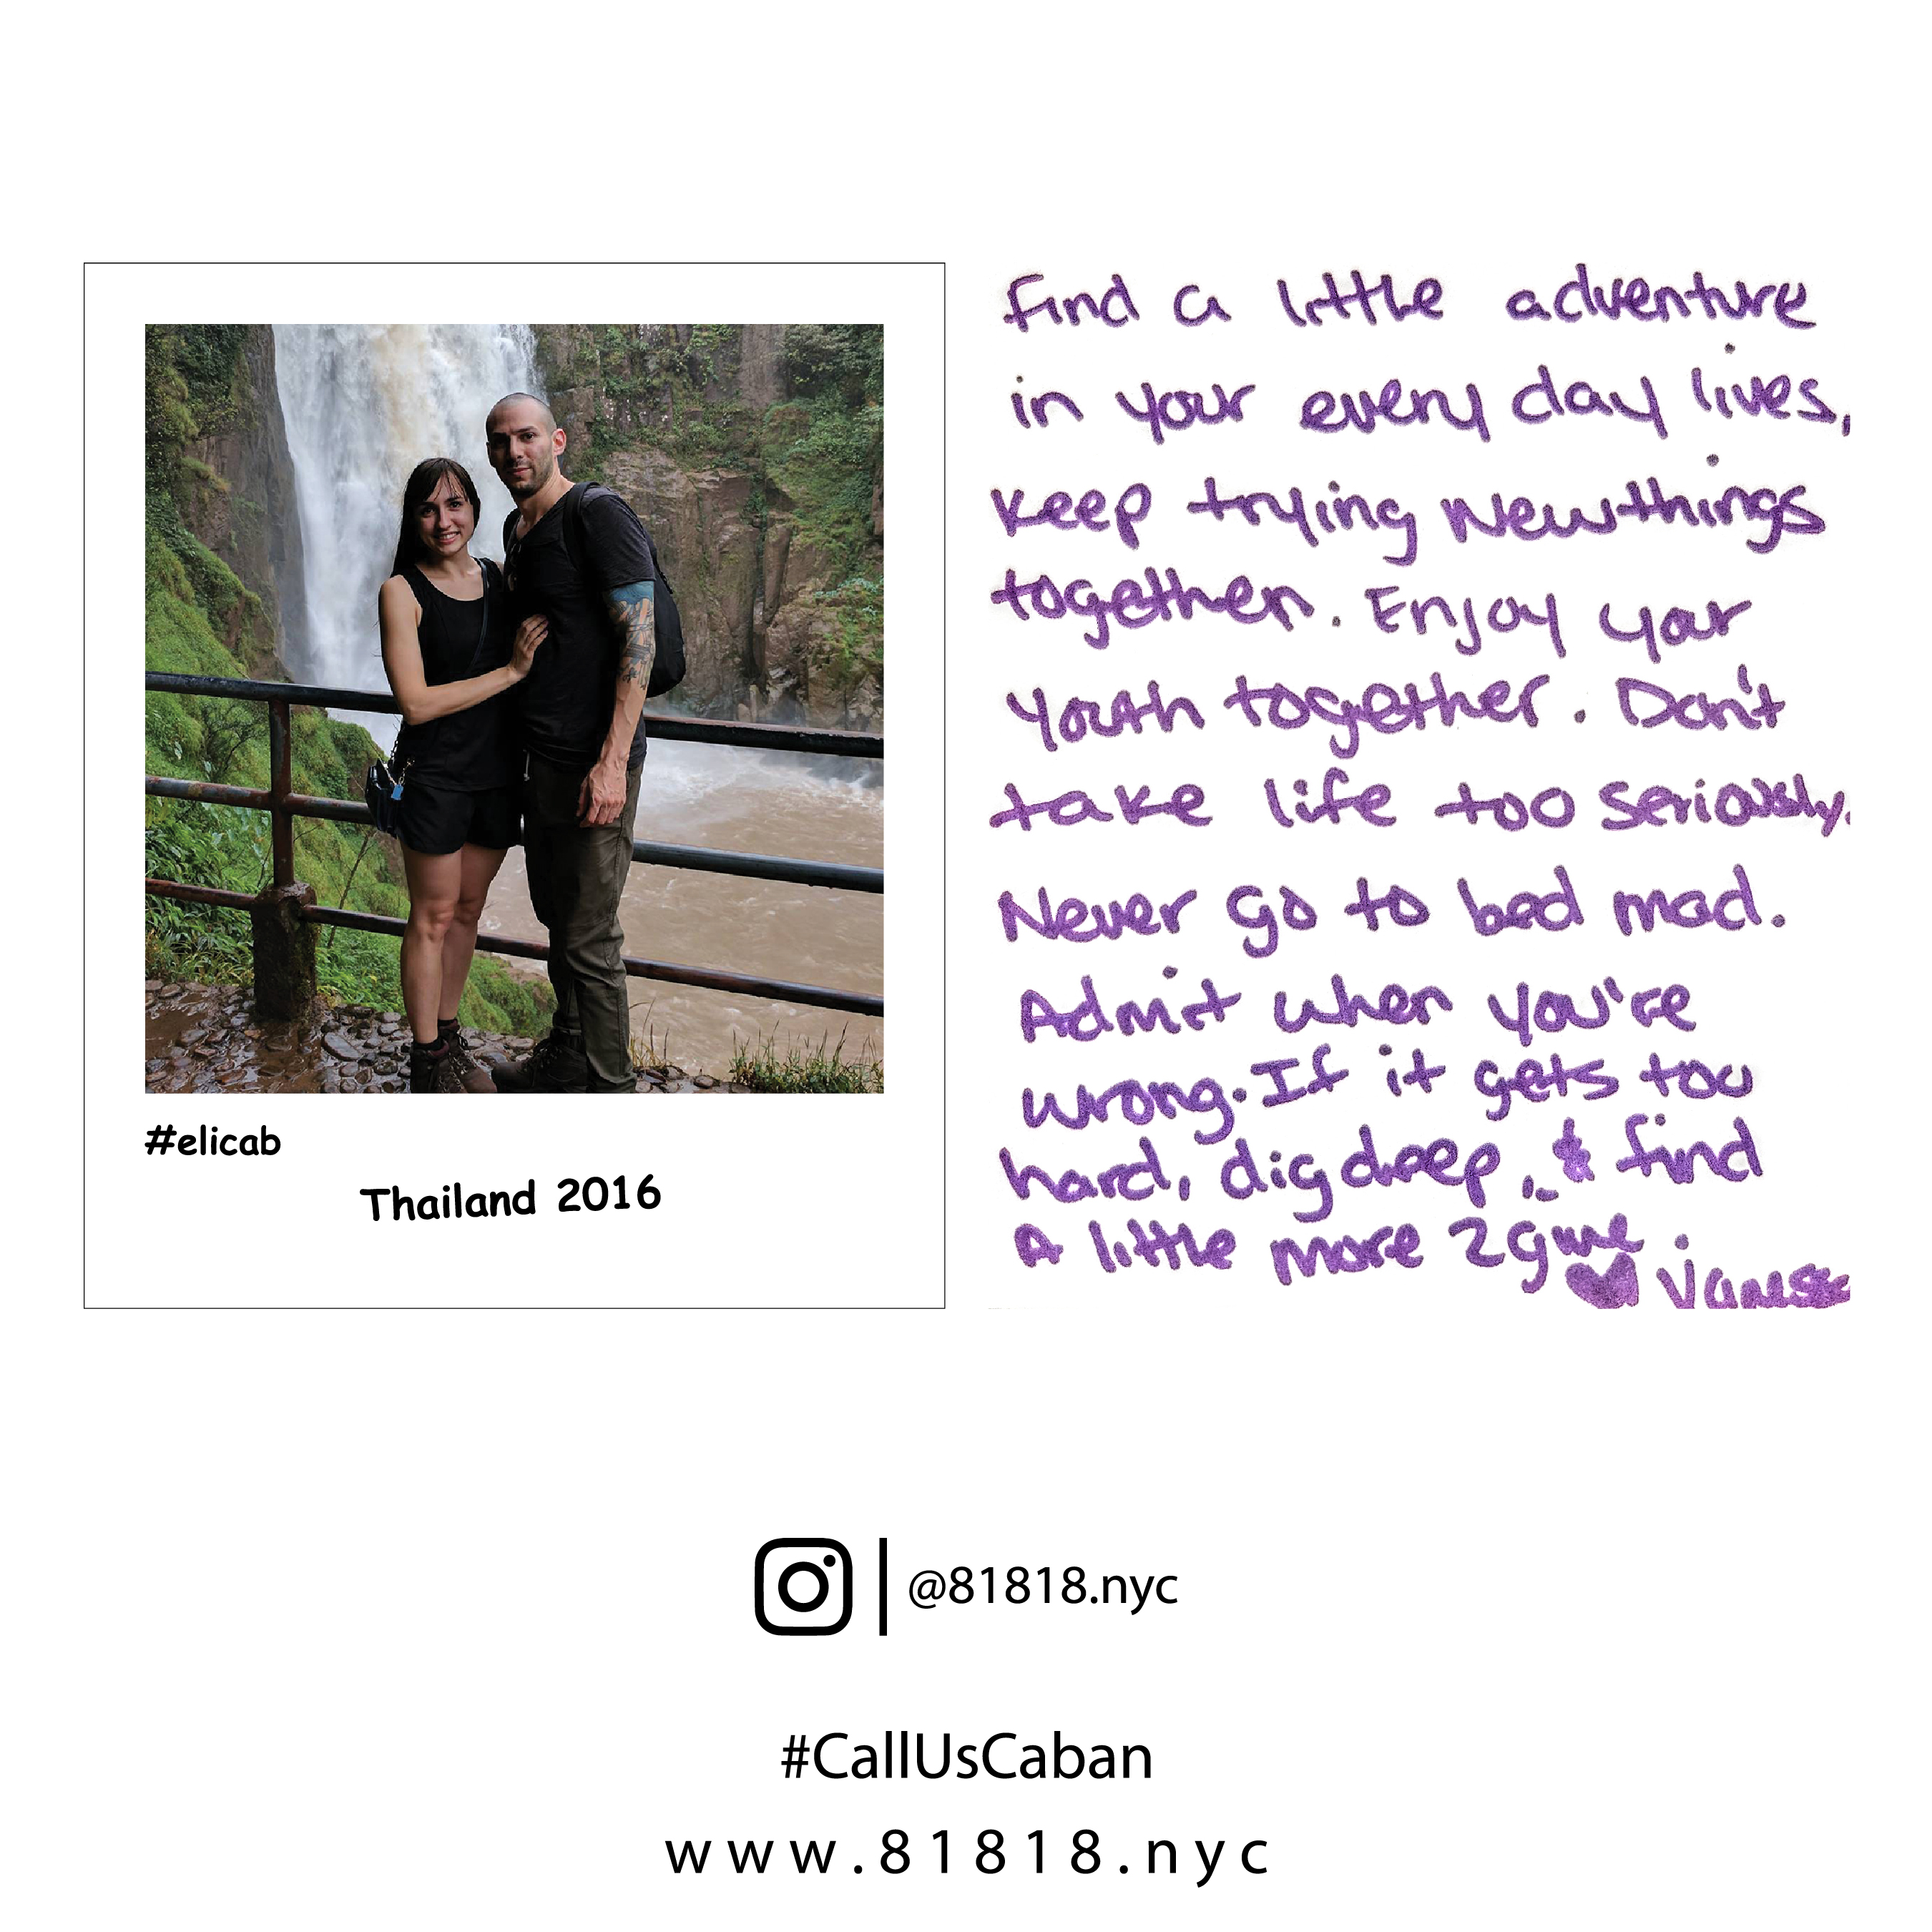 #elicab
Thailand 2016
Find a little adventure
in your every day lives,
keep trying new things
together. Enjoy your
youth together. Don't
take life too seriously.
Never go to bed mad.
Admit when you're
wrong. If it gets too
hard, dig deep, & find
a little more 2 give.
♥ Vanessa
@81818.nyc
#CallUsCaban
www.81818.nyc